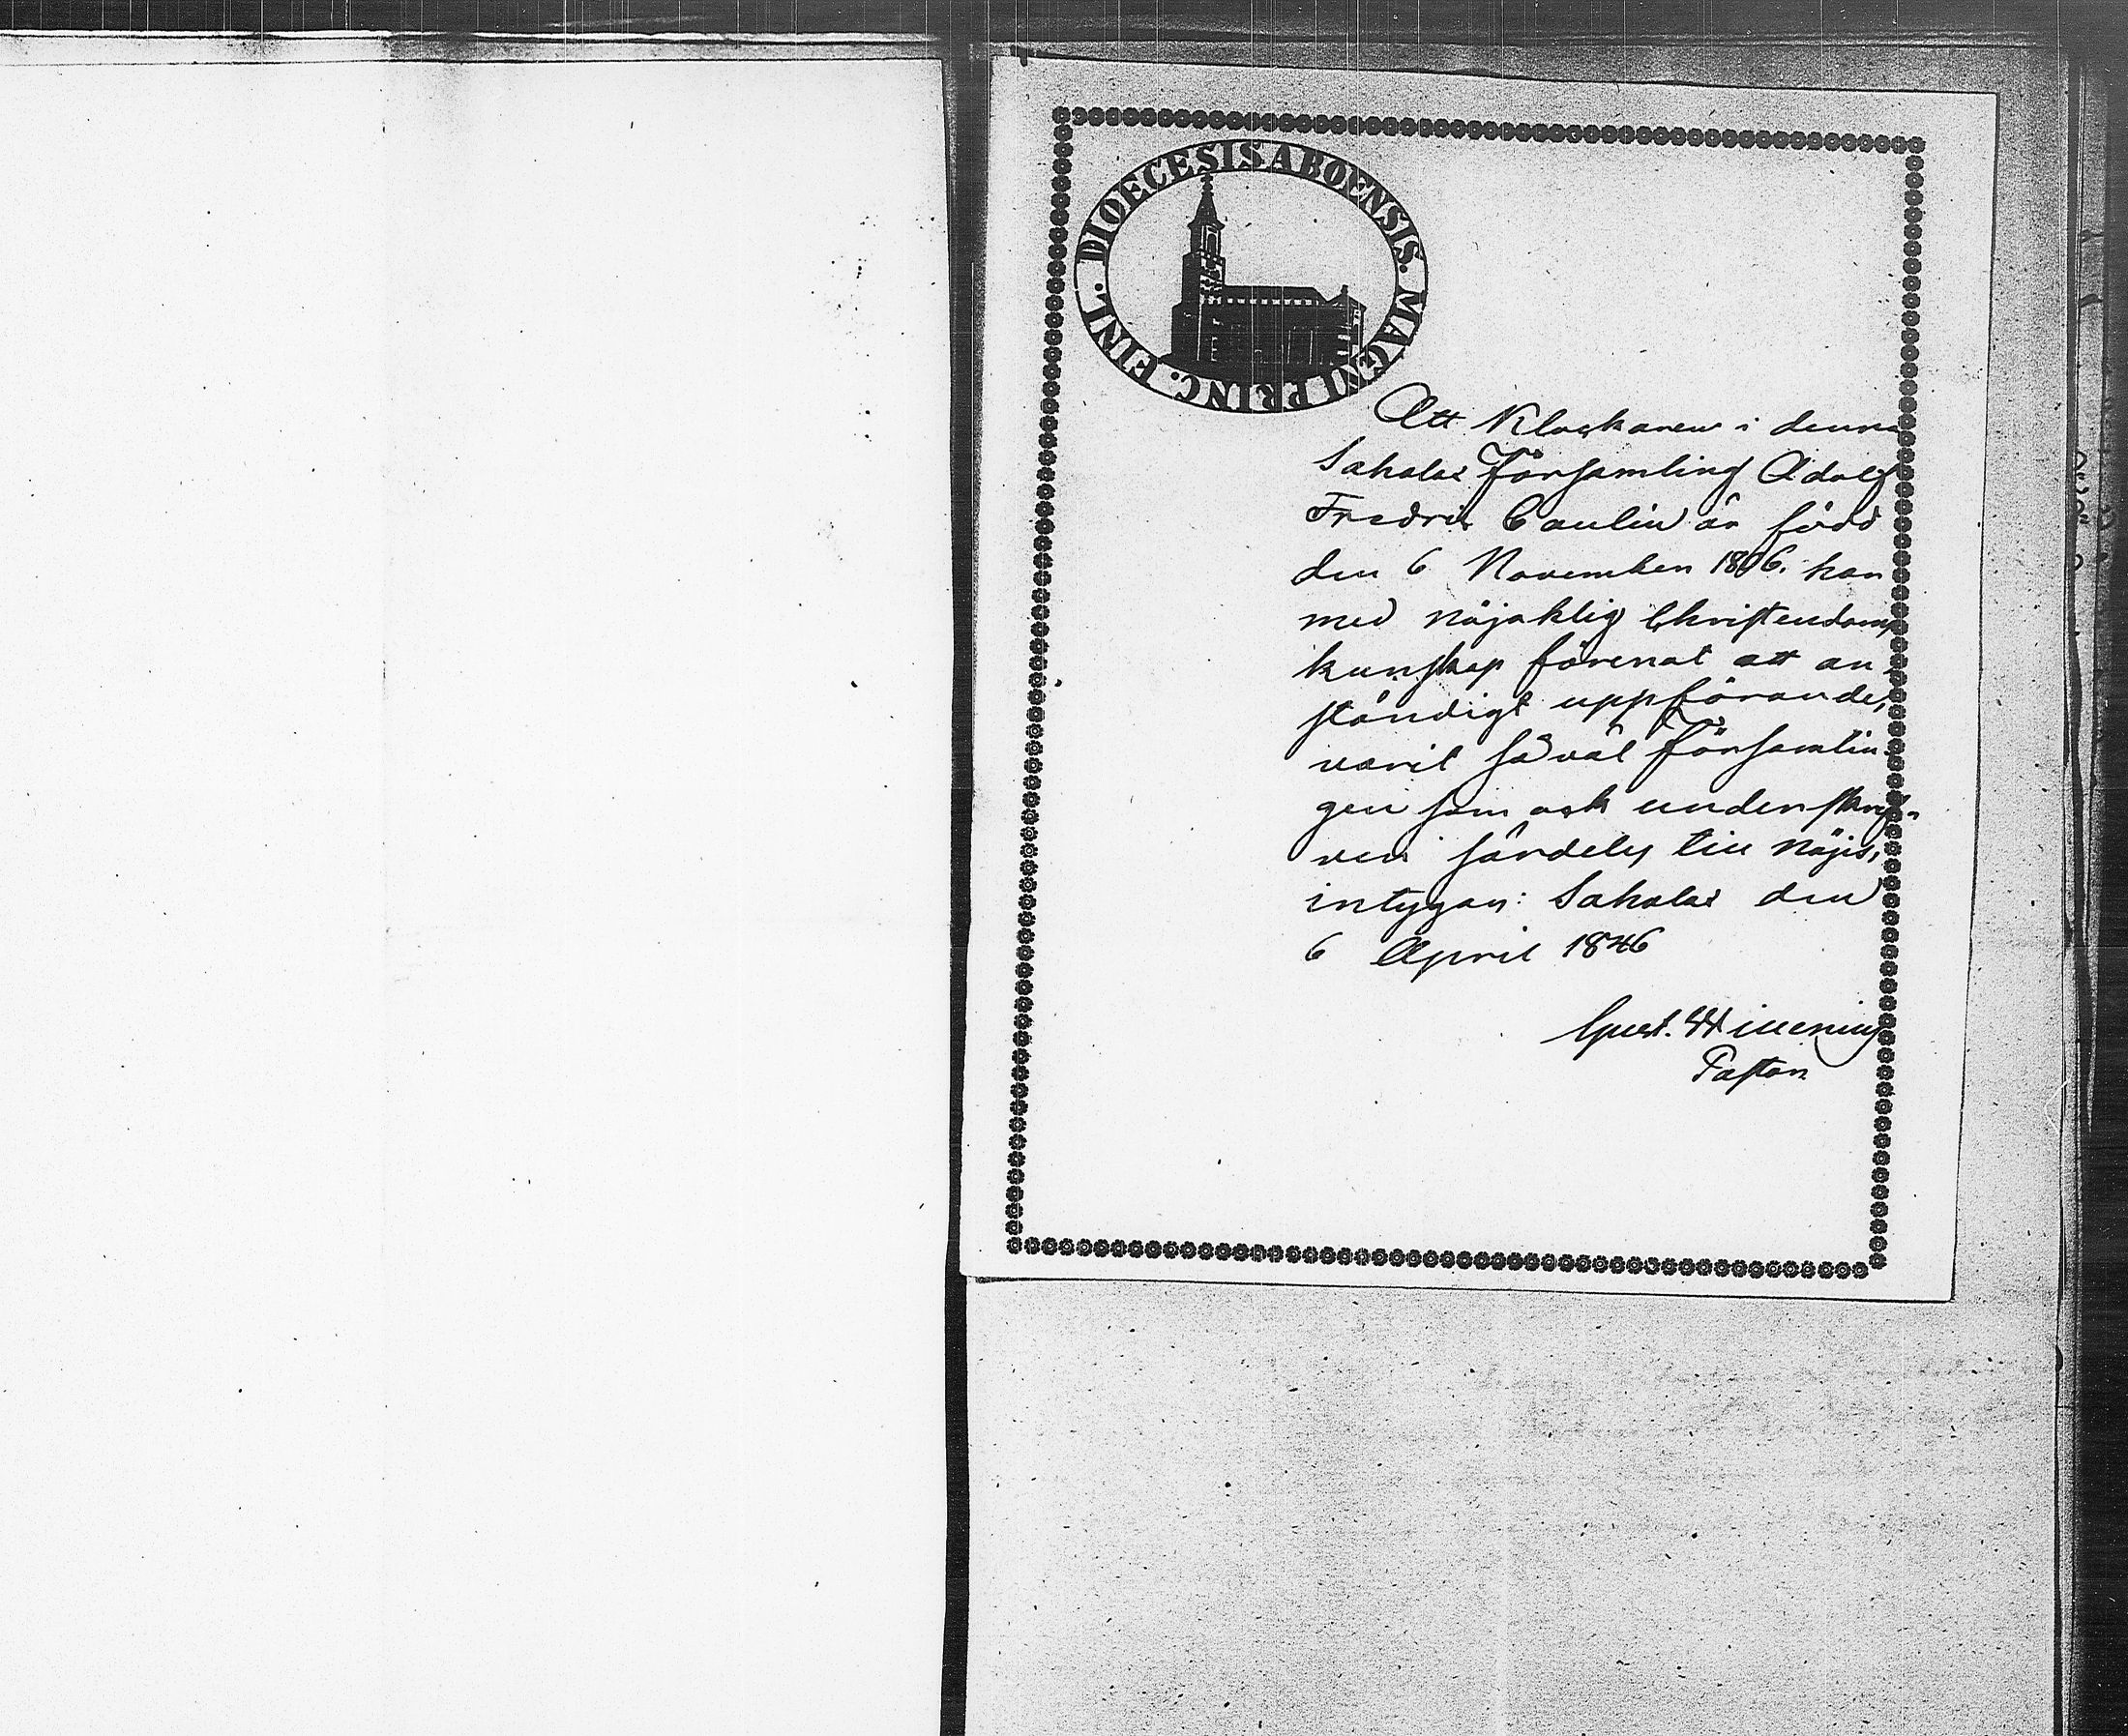 DIOECESIS ABOENSIS. MAGNI PRINC. FINL.
Att Klockaren i denna
Sahalax Församling Adolf
Fredric Caulin är född
den 6 November 1806. han
med nöjaktig Christendoms
kunskap förenat att an-
ständigt uppförande,
varit så väl församlin-
gen som ock underskrif-
ven särdeles till nöjes,
intygas: Sahalax den
6 April 1846
Gust.
Pastor